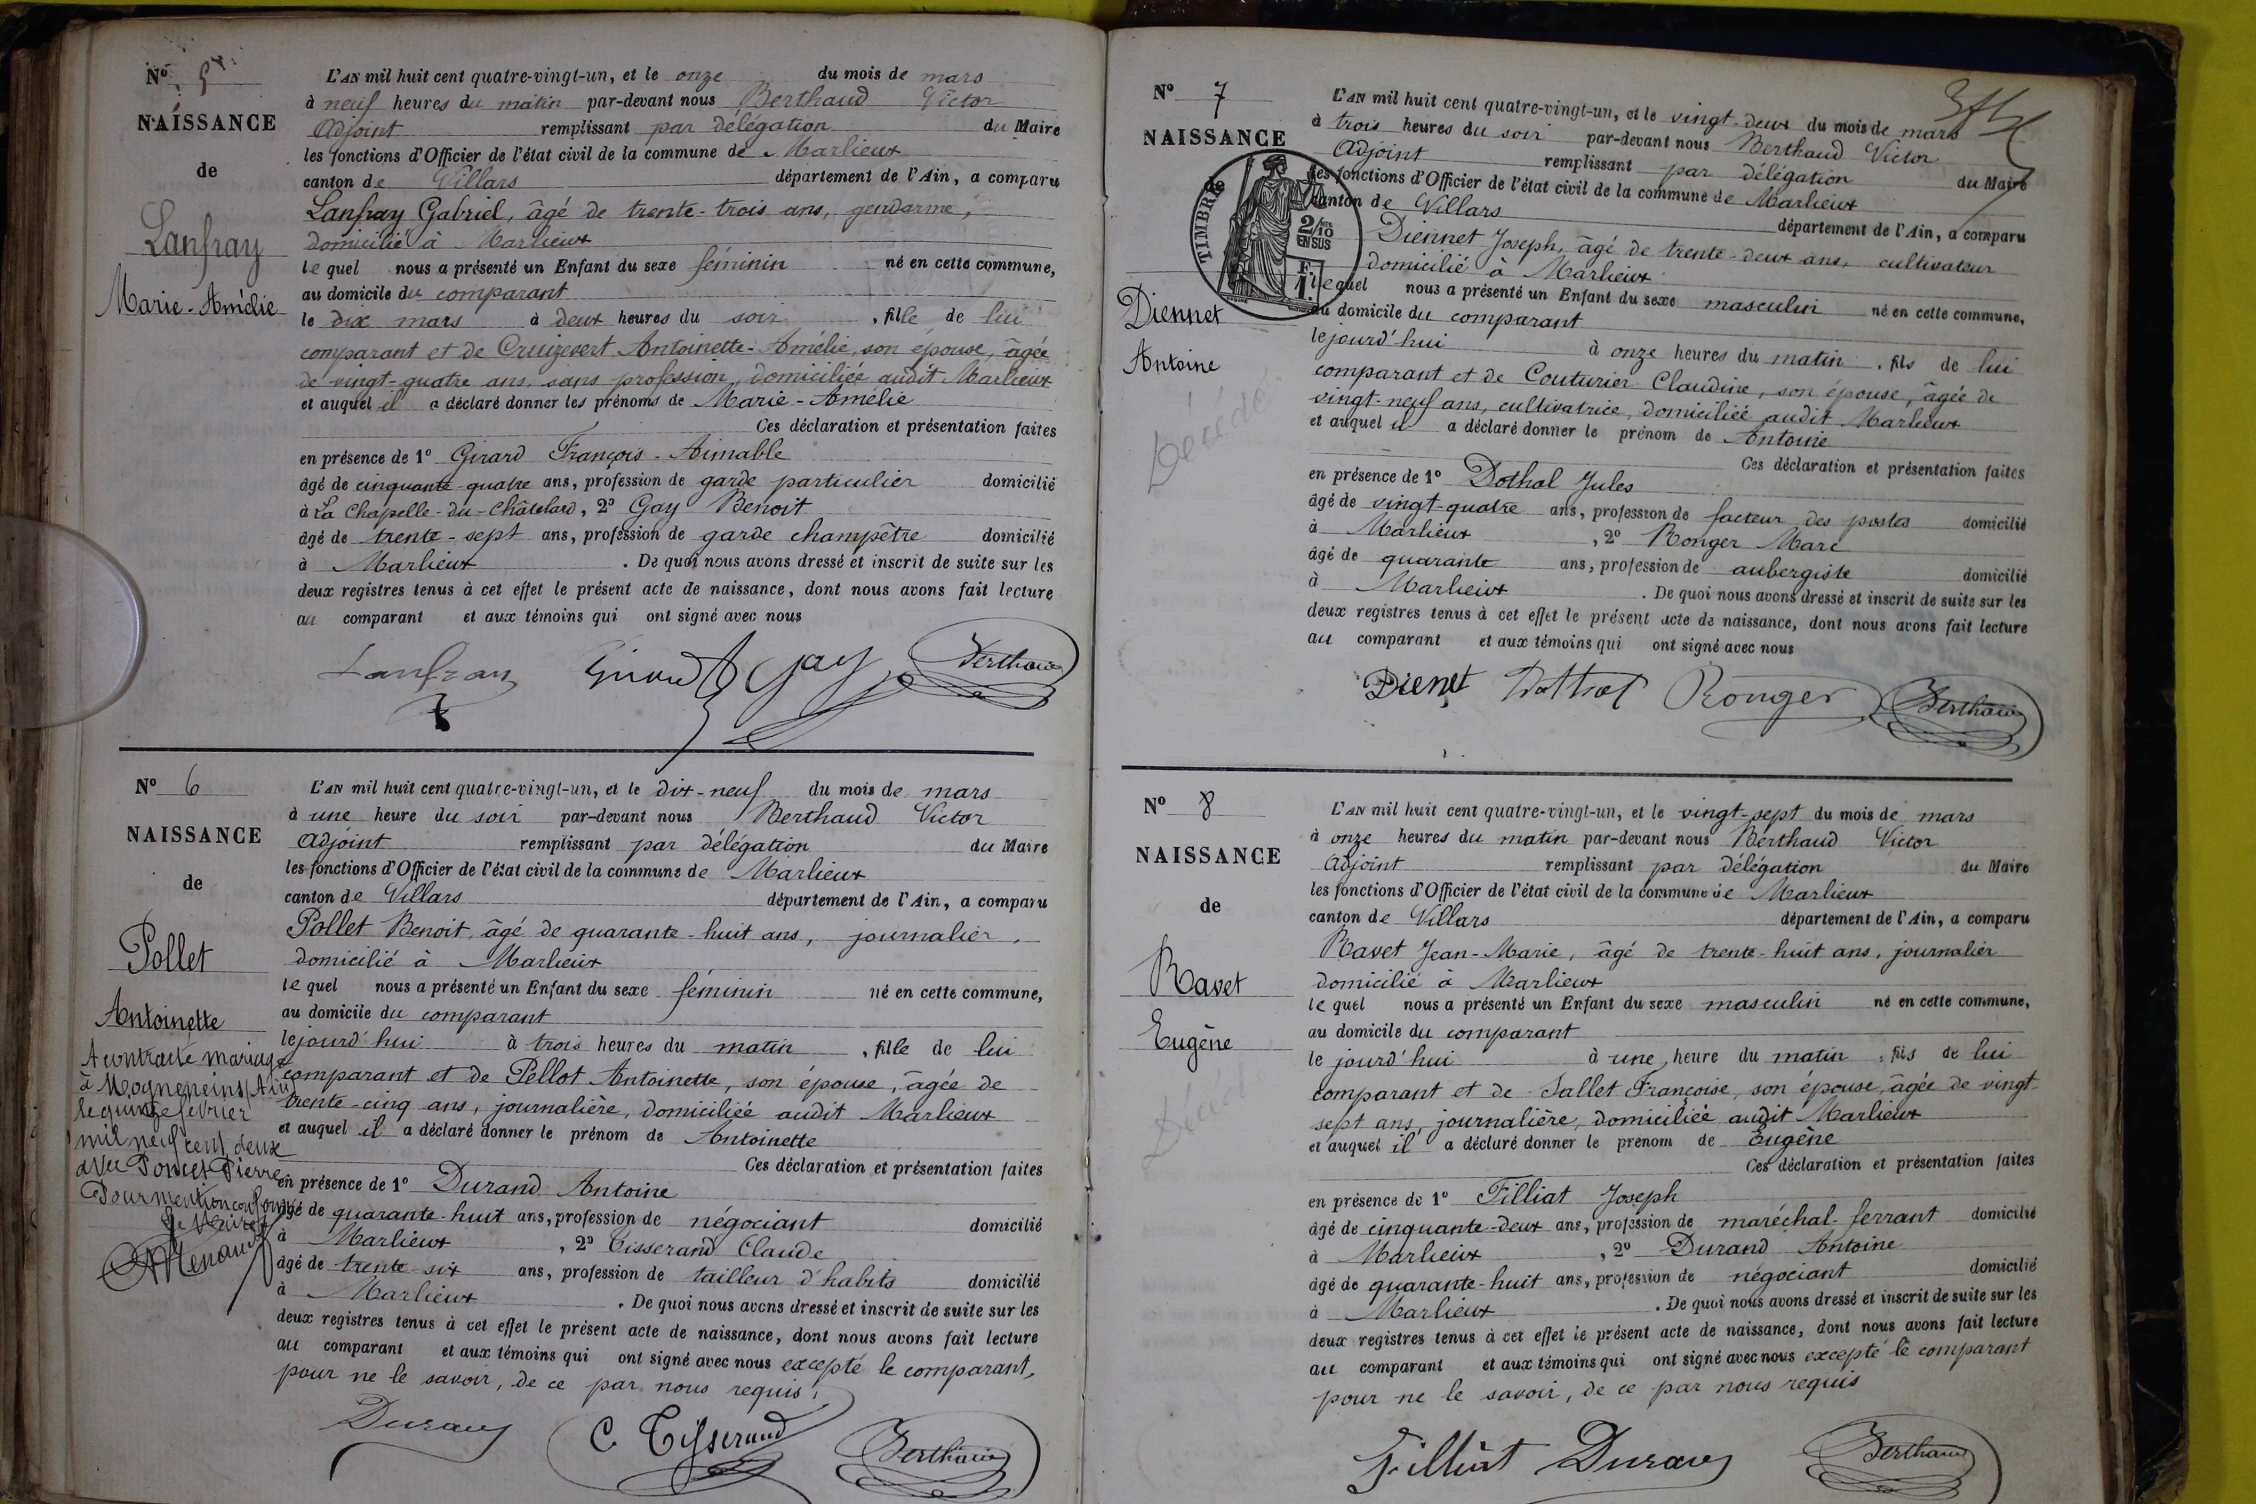 Nº 5
NAISSANCE
de
Lanfray
Marie-Amélie
L'AN mil huit cent quatre-vingt-un, et le onze du mois de mars
à neuf heures du matin par-devant nous Berthaud Victor
Adjoint remplissant par délégation du Maire
les fonctions d'Officier de l'état civil de la commune de Marlieux
canton de Villars département de l'Ain, a comparu
Lanfray Gabriel, âgé de trente-trois ans, gendarme,
domicilié à Marlieux
lequel nous a présenté un Enfant du sexe féminin né en cette commune,
au domicile du comparant
le dix mars à deux heures du soir, fille de lui
comparant et de Cruizevert Antoinette-Amélie, son épouse, âgée
de vingt-quatre ans, sans profession, domiciliée audit Marlieux
et auquel il a déclaré donner les prénoms de Marie-Amélie
Ces déclaration et présentation faites
en présence de 1º Girard François-Aimable
âgé de cinquante-quatre ans, profession de garde particulier domicilié
à La Chapelle-du-Châtelard, 2º Gay Benoit
âgé de trente-sept ans, profession de garde champêtre domicilié
à Marlieux. De quoi nous avons dressé et inscrit de suite sur les
deux registres tenus à cet effet le présent acte de naissance, dont nous avons fait lecture
au comparant et aux témoins qui ont signé avec nous
Lanfray Girard Gay Berthaud
Nº 6
NAISSANCE
de
Pollet
Antoinette
A contracté mariage
à Mogneneins (Ain)
le quinze février
mil neuf cent deux
avec Poncet Pierre
Pour mention conforme
Le Maire
L'AN mil huit cent quatre-vingt-un, et le dix-neuf du mois de mars
à une heure du soir par-devant nous Berthaud Victor
Adjoint remplissant par délégation du Maire
les fonctions d'Officier de l'état civil de la commune de Marlieux
canton de Villars département de l'Ain, a comparu
Pollet Benoit, âgé de quarante-huit ans, journalier,
domicilié à Marlieux
lequel nous a présenté un Enfant du sexe féminin né en cette commune,
au domicile du comparant
le jourd'hui à trois heures du matin, fille de lui
comparant et de Pellot Antoinette, son épouse, âgée de
trente-cinq ans, journalière, domiciliée audit Marlieux
et auquel il a déclaré donner le prénom de Antoinette
Ces déclaration et présentation faites
en présence de 1º Durand Antoine
âgé de quarante-huit ans, profession de négociant domicilié
à Marlieux, 2º Tisserand Claude
âgé de trente-six ans, profession de tailleur d'habits domicilié
à Marlieux. De quoi nous avons dressé et inscrit de suite sur les
deux registres tenus à cet effet le présent acte de naissance, dont nous avons fait lecture
au comparant et aux témoins qui ont signé avec nous excepté le comparant,
pour ne le savoir, de ce par nous requis.
Durand C. Tisserand Berthaud
Nº 7
NAISSANCE
de
TIMBRE
2/10
EN SUS
Diennet
Antoine
L'AN mil huit cent quatre-vingt-un, et le vingt-deux du mois de mars
à trois heures du soir par-devant nous Berthaud Victor
Adjoint remplissant par délégation du Maire
les fonctions d'Officier de l'état civil de la commune de Marlieux
canton de Villars département de l'Ain, a comparu
Diennet Joseph, âgé de trente-deux ans, cultivateur
domicilié à Marlieux
lequel nous a présenté un Enfant du sexe masculin né en cette commune,
au domicile du comparant
le jourd'hui à onze heures du matin, fils de lui
comparant et de Couturier Claudine, son épouse, âgée de
vingt-neuf ans, cultivatrice, domiciliée audit Marlieux
et auquel il a déclaré donner le prénom de Antoine
Ces déclaration et présentation faites
en présence de 1º Dothal Jules
âgé de vingt-quatre ans, profession de facteur des postes domicilié
à Marlieux, 2º Ronger Marc
âgé de quarante ans, profession de aubergiste domicilié
à Marlieux. De quoi nous avons dressé et inscrit de suite sur les
deux registres tenus à cet effet le présent acte de naissance, dont nous avons fait lecture
au comparant et aux témoins qui ont signé avec nous
Dienet Dothal Ronger Berthaud
Nº 8
NAISSANCE
de
Ravet
Eugène
L'AN mil huit cent quatre-vingt-un, et le vingt-sept du mois de mars
à onze heures du matin par-devant nous Berthaud Victor
Adjoint remplissant par délégation du Maire
les fonctions d'Officier de l'état civil de la commune de Marlieux
canton de Villars département de l'Ain, a comparu
Ravet Jean-Marie, âgé de trente-huit ans, journalier
domicilié à Marlieux
lequel nous a présenté un Enfant du sexe masculin né en cette commune,
au domicile du comparant
le jourd'hui à une heure du matin, fils de lui
comparant et de Sallet Françoise, son épouse, âgée de vingt-
sept ans, journalière, domiciliée audit Marlieux
et auquel il a déclaré donner le prénom de Eugène
Ces déclaration et présentation faites
en présence de 1º Filliat Joseph
âgé de cinquante-deux ans, profession de maréchal-ferrant domicilié
à Marlieux, 2º Durand Antoine
âgé de quarante-huit ans, profession de négociant domicilié
à Marlieux. De quoi nous avons dressé et inscrit de suite sur les
deux registres tenus à cet effet le présent acte de naissance, dont nous avons fait lecture
au comparant et aux témoins qui ont signé avec nous excepté le comparant
pour ne le savoir, de ce par nous requis
Filliat Durand Berthaud